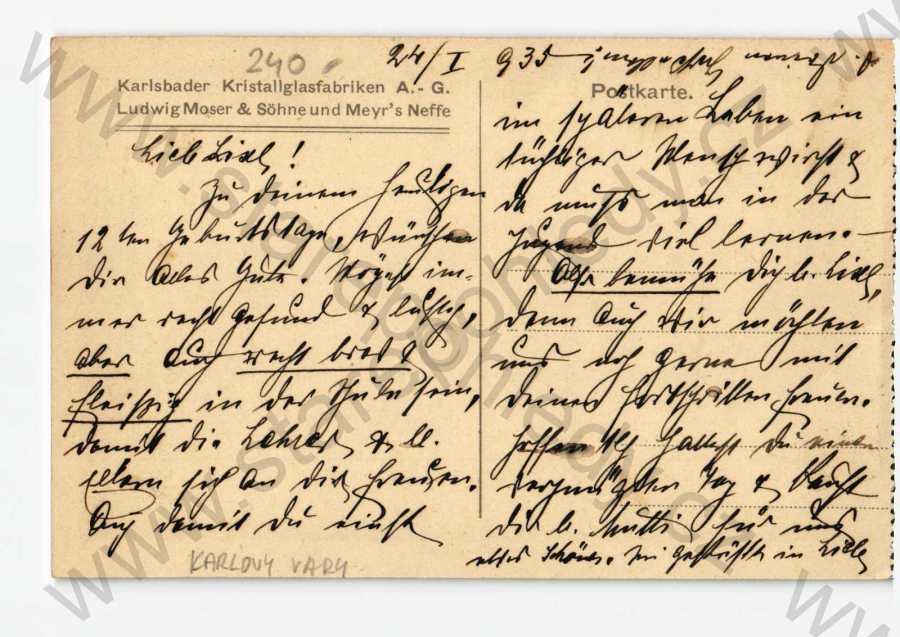 240
24/I 935
Karlsbader Kristallglasfabriken A.-G.
Ludwig Moser & Söhne und Meyr's Neffe
Postkarte.
Lieb Lixl!
Zu deinem heutigen
12ten Geburtstage, wünschen
Dir alles Gute. Mögest im-
mer recht gesund & lustig,
aber auch recht brav &
fleißig in der Schule sein,
damit die Lehrer & l.
Eltern sich an dir freuen.
Auch damit du einst
im späteren Leben ein
tüchtiger Mensch wirst &
da muß man in der
Jugend viel lernen.-
Also bemühe Dich l. Lixl,
denn auch wir möchten
uns noch gerne mit
deinen Fortschritten freuen.
Hoffentlich hattest du einen
vergnügten Tag &
die l. Mutti für uns
alles Schöne. Sei geküßt in Liebe
KARLOVY VARY
www.staré pohledy.cz